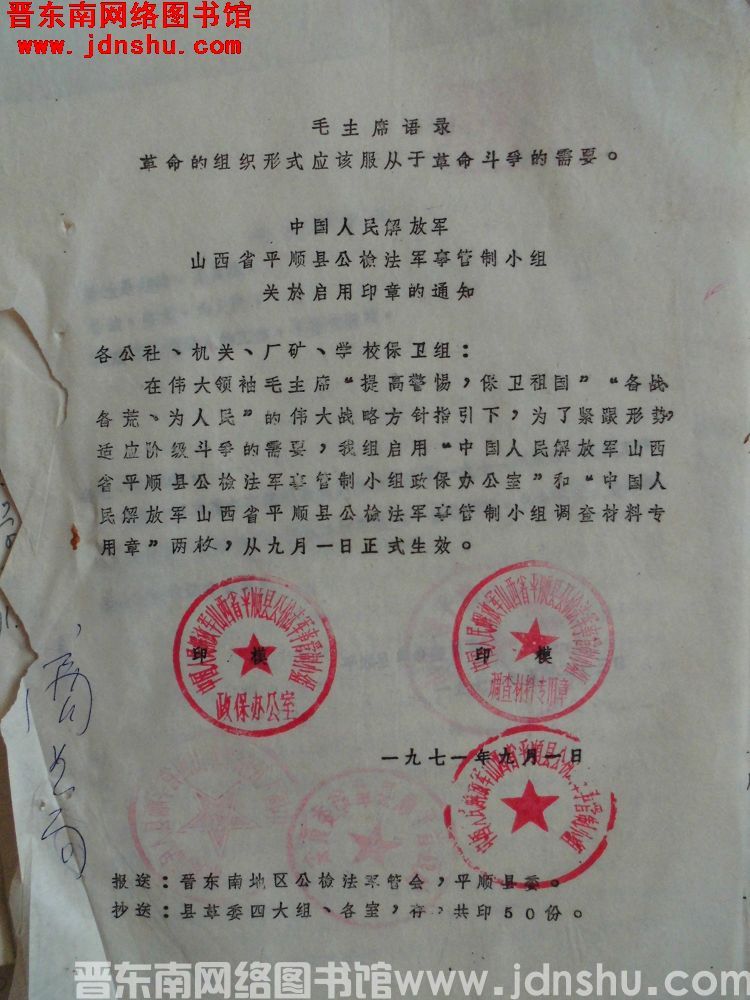 晋东南网络图书馆
www.jdnshu.com
毛主席语录
革命的组织形式应该服从于革命斗争的需要。
中国人民解放军
山西省平顺县公检法军事管制小组
关於启用印章的通知
各公社、机关、厂矿、学校保卫组：
在伟大领袖毛主席“提高警惕，保卫祖国”“备战
备荒、为人民”的伟大战略方针指引下，为了紧跟形势，
适应阶级斗争的需要，我组启用“中国人民解放军山西
省平顺县公检法军事管制小组政保办公室”和“中国人
民解放军山西省平顺县公检法军事管制小组调查材料专
用章”两枚，从九月一日正式生效。
中国人民解放军山西省平顺县公检法军事管制小组
印 模
政保办公室
中国人民解放军山西省平顺县公检法军事管制小组
印 模
调查材料专用章
一九七一年九月一日
中国人民解放军山西省平顺县公检法军事管制小组
报送：晋东南地区公检法军管会，平顺县委。
抄送：县革委四大组、各室，存，共印50份。
晋东南网络图书馆www.jdnshu.com